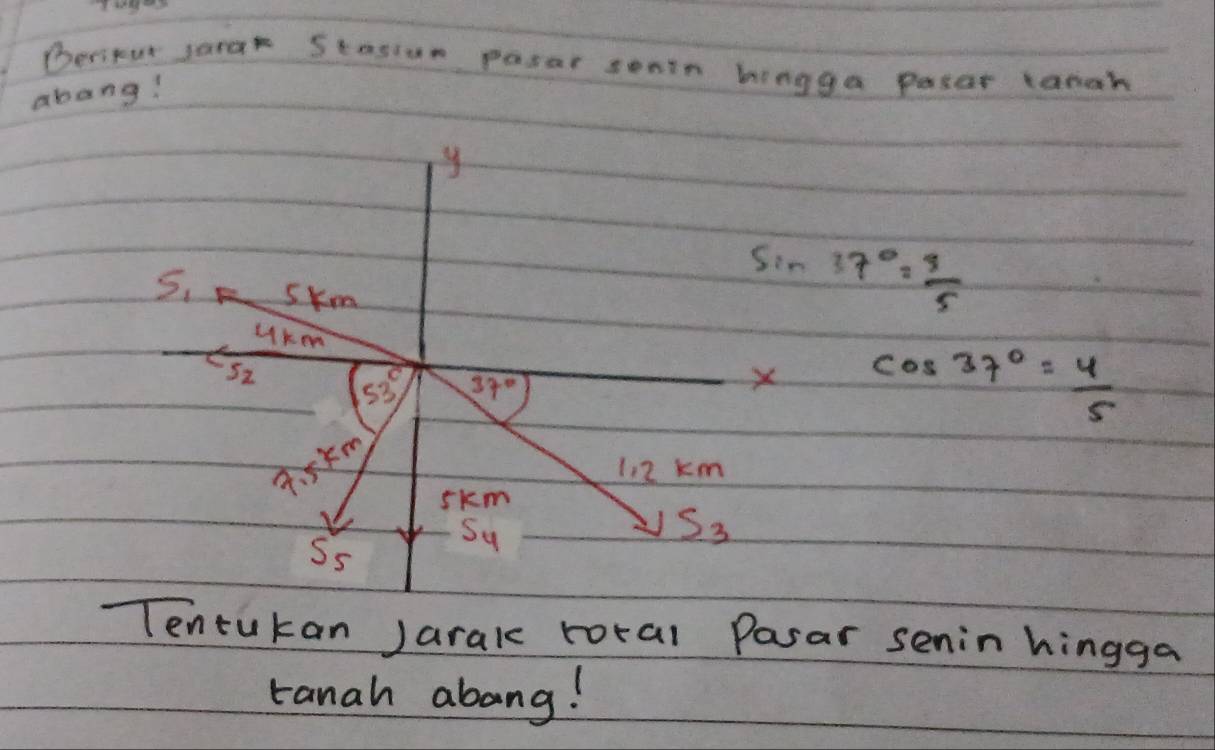 Tugas
Berikut jarak Stasiun pasar senin hingga pasar tanah
abang!
y
Sin 37° = 3/5
S1 5km
4km
S2
53°
37°
x
cos 37° = 4/5
7.5km
1.2 km
5km
S4
S3
S5
Tentukan Jarak total Pasar senin hingga
tanah abang!